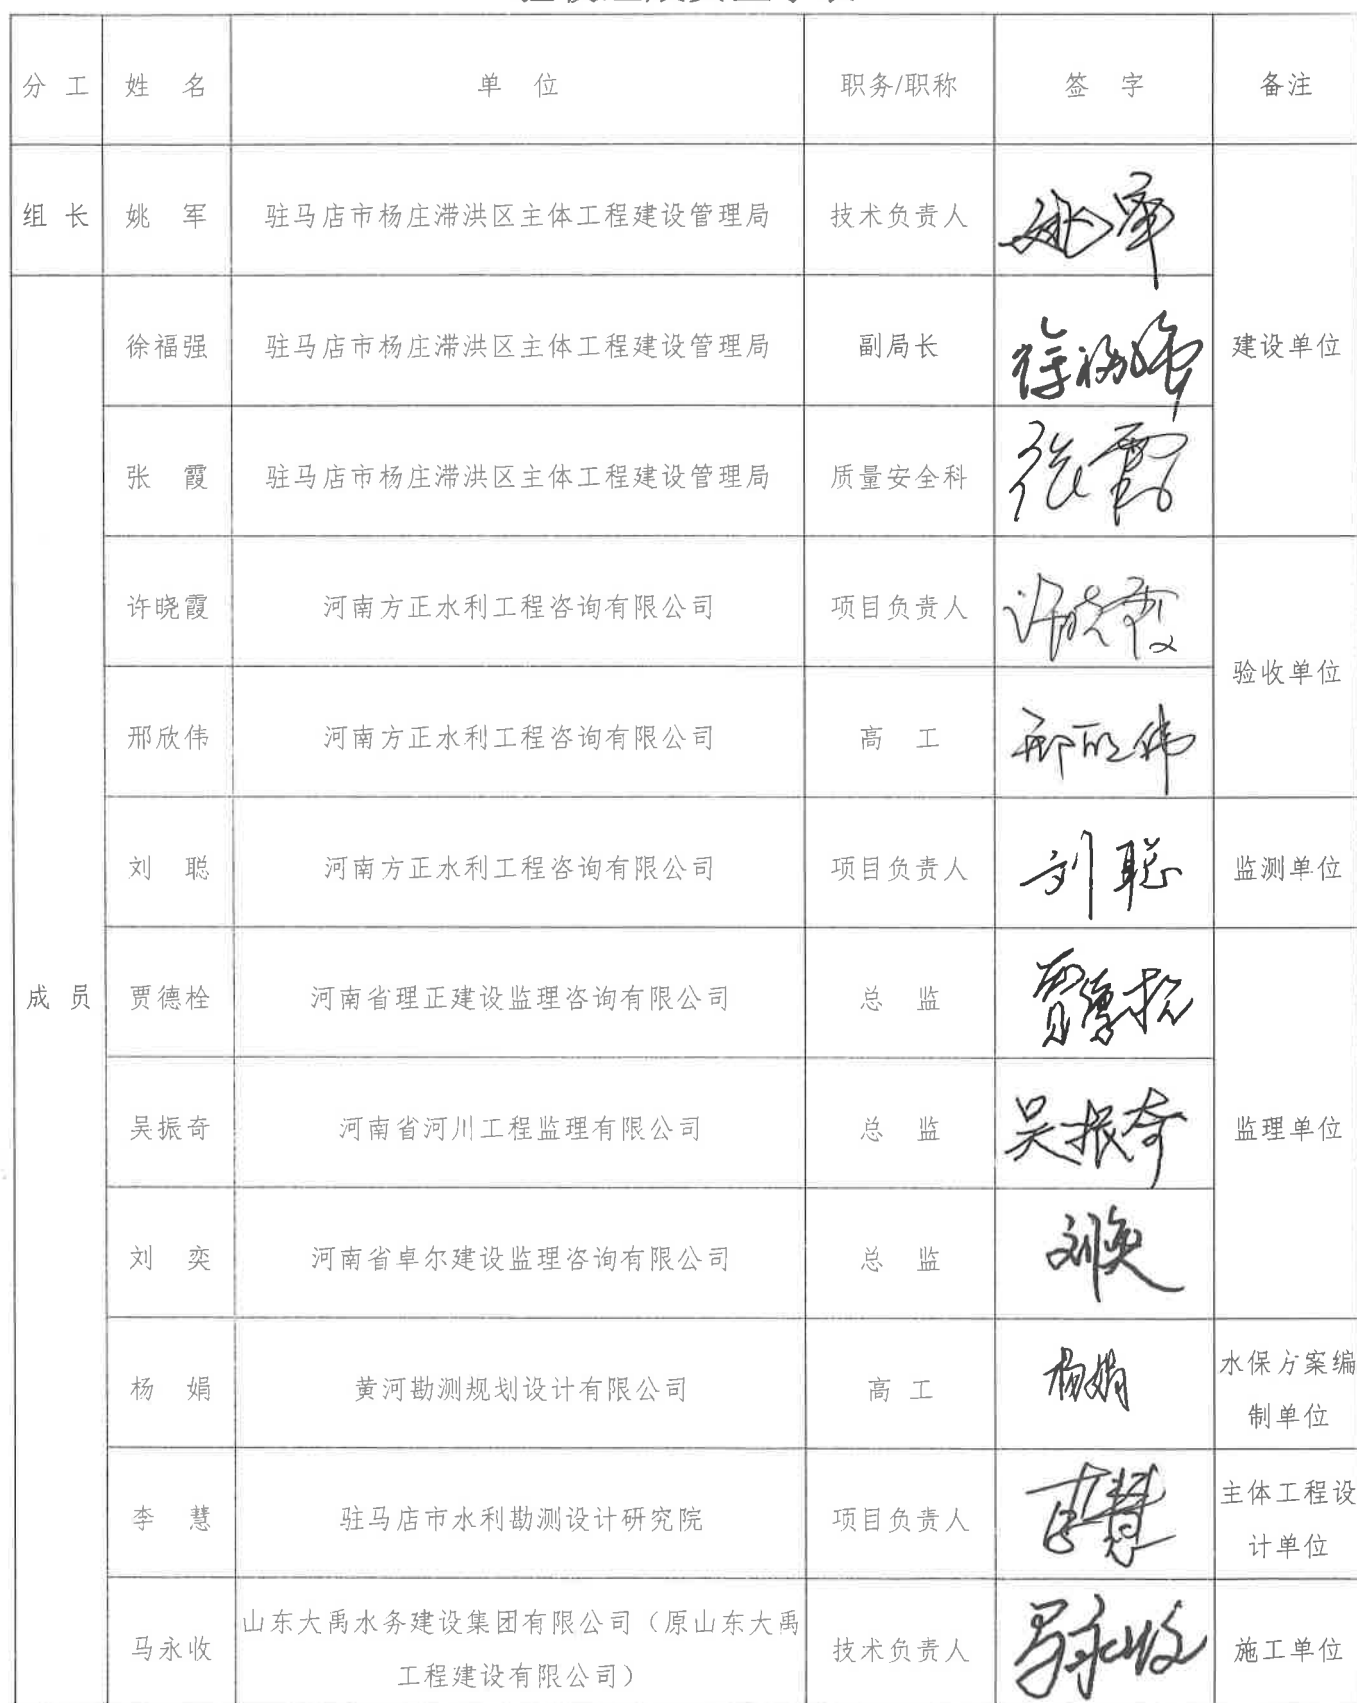 分工 姓名 单位 职务/职称 签字 备注
组长 姚军 驻马店市杨庄滞洪区主体工程建设管理局 技术负责人 姚军
徐福强 驻马店市杨庄滞洪区主体工程建设管理局 副局长 徐福强 建设单位
张霞 驻马店市杨庄滞洪区主体工程建设管理局 质量安全科 张霞
许晓霞 河南方正水利工程咨询有限公司 项目负责人 许晓霞
验收单位
邢欣伟 河南方正水利工程咨询有限公司 高工 邢欣伟
刘聪 河南方正水利工程咨询有限公司 项目负责人 刘聪 监测单位
成员 贾德栓 河南省理正建设监理咨询有限公司 总监 贾德栓
吴振奇 河南省河川工程监理有限公司 总监 吴振奇 监理单位
刘奕 河南省卓尔建设监理咨询有限公司 总监 刘奕
杨娟 黄河勘测规划设计有限公司 高工 杨娟 水保方案编
制单位
李慧 驻马店市水利勘测设计研究院 项目负责人 李慧 主体工程设
计单位
马永收 山东大禹水务建设集团有限公司（原山东大禹
工程建设有限公司） 技术负责人 马永收 施工单位